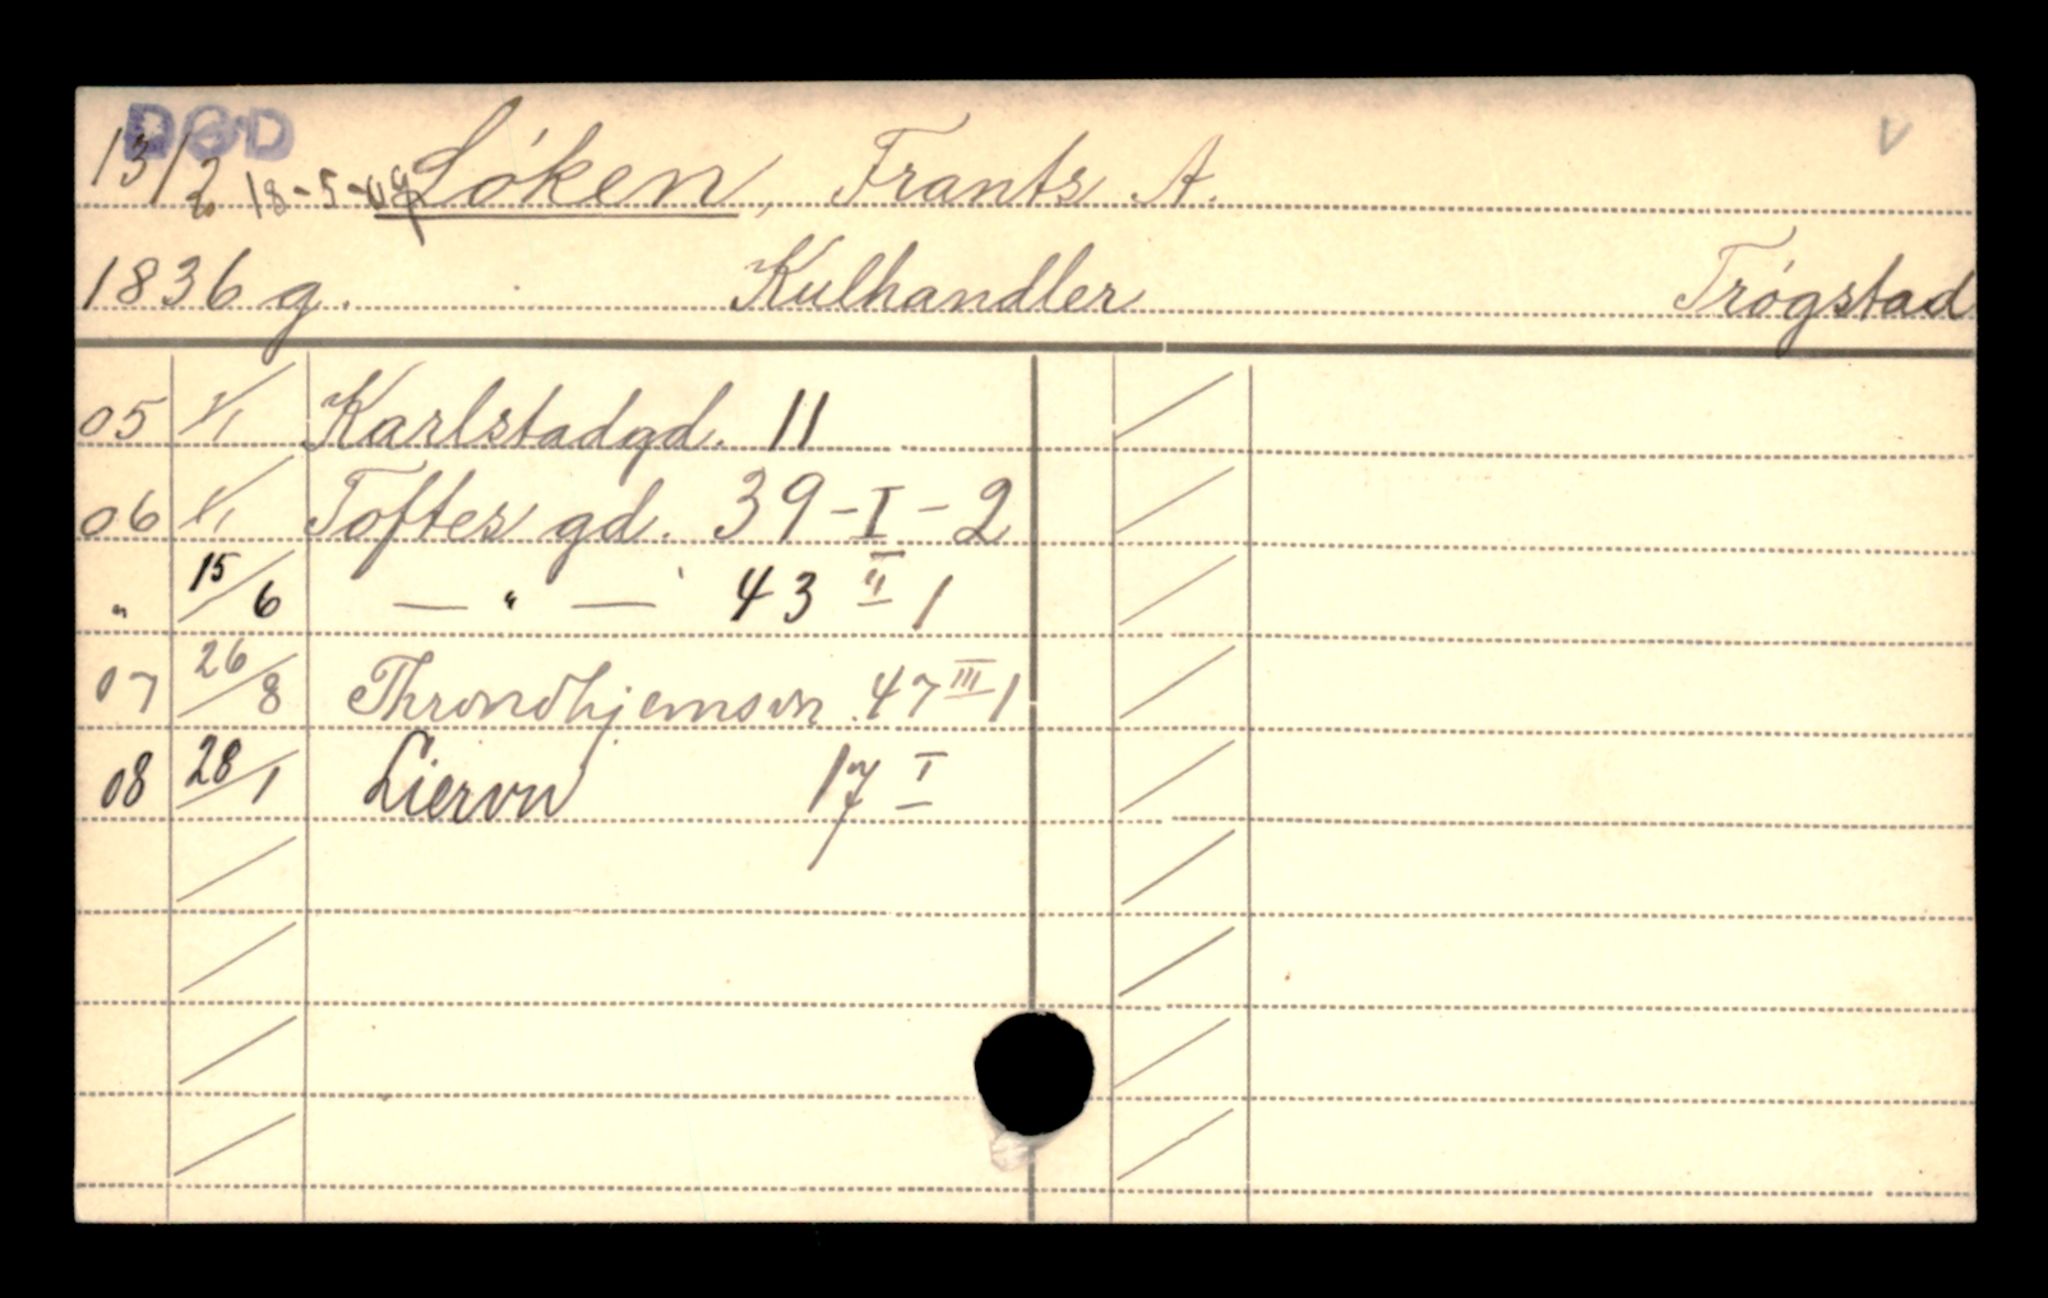 DØD
13/2 18-5-09 Løken, Frants A. V
1836 g. Kulhandler Trøgstad
05 1/1 Karlstadgd. 11
06 1/1 Toftes gd. 39-I-2
" 15/6 — " — 43 II 1
07 26/8 Throndhjemsvn. 47 III 1
08 28/1 Liervn 17 I